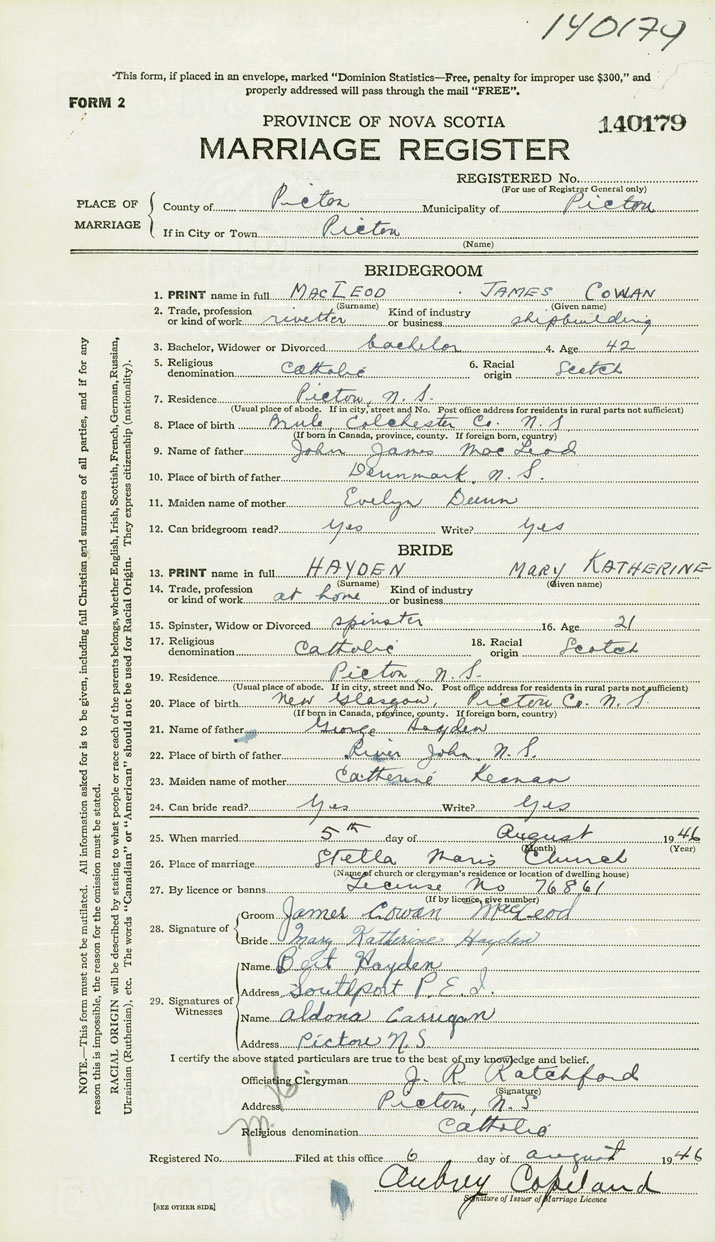 140179
"This form, if placed in an envelope, marked "Dominion Statistics—Free, penalty for improper use $300," and
properly addressed will pass through the mail "FREE".
FORM 2
PROVINCE OF NOVA SCOTIA
140179
MARRIAGE REGISTER
REGISTERED No.
(For use of Registrar General only)
PLACE OF MARRIAGE
County of Pictou Municipality of Pictou
If in City or Town Pictou
(Name)
BRIDEGROOM
1. PRINT name in full MACLEOD JAMES COWAN
(Surname) (Given name)
2. Trade, profession or kind of work rivetter Kind of industry or business shipbuilding
3. Bachelor, Widower or Divorced bachelor 4. Age 42
5. Religious denomination Catholic 6. Racial origin Scotch
7. Residence Pictou, N.S.
(Usual place of abode. If in city, street and No. Post office address for residents in rural parts not sufficient)
8. Place of birth Brule, Colchester Co. N.S
(If born in Canada, province, county. If foreign born, country)
9. Name of father John James MacLeod
10. Place of birth of father Dennmark, N.S.
11. Maiden name of mother Evelyn Dunn
12. Can bridegroom read? Yes Write? Yes
BRIDE
13. PRINT name in full HAYDEN MARY KATHERINE
(Surname) (Given name)
14. Trade, profession or kind of work at home Kind of industry or business
15. Spinster, Widow or Divorced spinster 16. Age 21
17. Religious denomination Catholic 18. Racial origin Scotch
19. Residence Pictou, N.S.
(Usual place of abode. If in city, street and No. Post office address for residents in rural parts not sufficient)
20. Place of birth New Glasgow, Pictou Co. N.S.
(If born in Canada, province, county. If foreign born, country)
21. Name of father George Hayden
22. Place of birth of father River John, N.S.
23. Maiden name of mother Catherine Keenan
24. Can bride read? Yes Write? Yes
25. When married 5th day of August 1946
(Month) (Year)
26. Place of marriage Stella Maris Church
(Name of church or clergyman's residence or location of dwelling house)
27. By licence or banns License No 76861
(If by licence, give number)
28. Signature of
Groom James Cowan MacLeod
Bride Mary Katherine Hayden
29. Signatures of Witnesses
Name Bert Hayden
Address Southport P.E.I.
Name Aldona Carrigan
Address Pictou N.S
I certify the above stated particulars are true to the best of my knowledge and belief.
Officiating Clergyman J. R. Ratchford
(Signature)
Address Pictou, N.S
Religious denomination Catholic
Registered No. Filed at this office 6 day of august 1946
Aubrey Copeland
Signature of Issuer of Marriage Licence
[SEE OTHER SIDE]
NOTE.—This form must not be mutilated. All information asked for is to be given, including full Christian and surnames of all parties, and if for any
reason this is impossible, the reason for the omission must be stated.
RACIAL ORIGIN will be described by stating to what people or race each of the parents belongs, whether English, Irish, Scottish, French, German, Russian,
Ukrainian (Ruthenian), etc. The words "Canadian" or "American" should not be used for Racial Origin. They express citizenship (nationality).